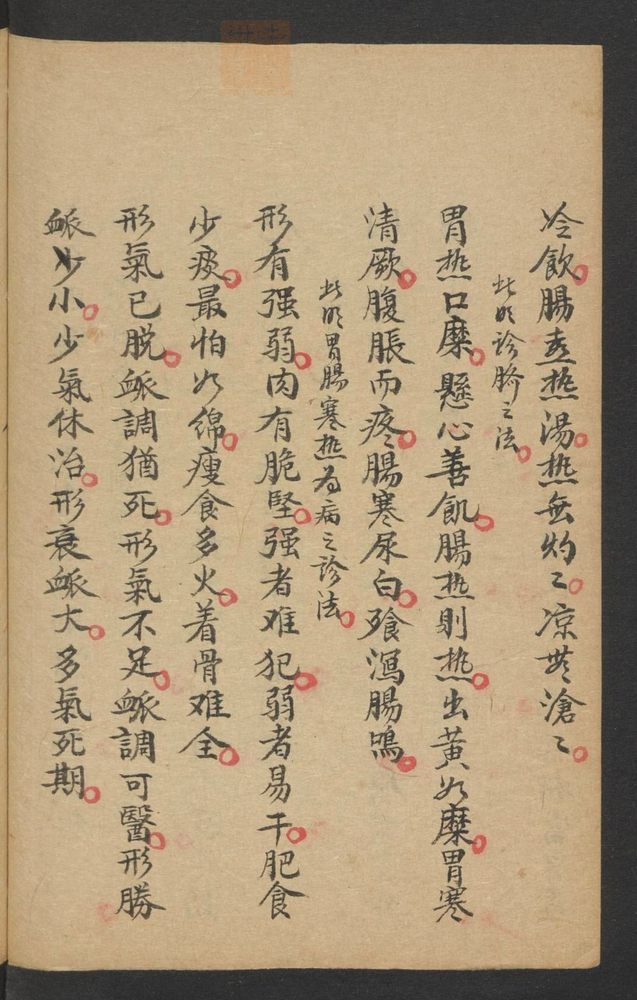 冷飲。腸喜热湯。热無灼〻。凉無滄〻。
此明診臍之法。
胃热口糜。懸心善飢。腸热則热。出黄如糜。胃寒
清厥。腹脹而疼。腸寒尿白。飱瀉腸鳴。
此明胃腸寒热为病之診法。
形有强弱。肉有脆堅。强者难犯。弱者易干。肥食
少痰。最怕如綿。瘦食多火。着骨难全。
形氣已脱。脈調猶死。形氣不足。脈調可醫。形勝
脈少小。少氣休治。形衰脈大。多氣死期。